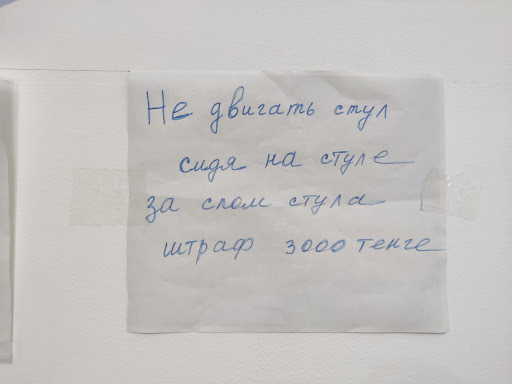 Не двигать стул
сидя на стуле
за слом стула
штраф 3000 тенге